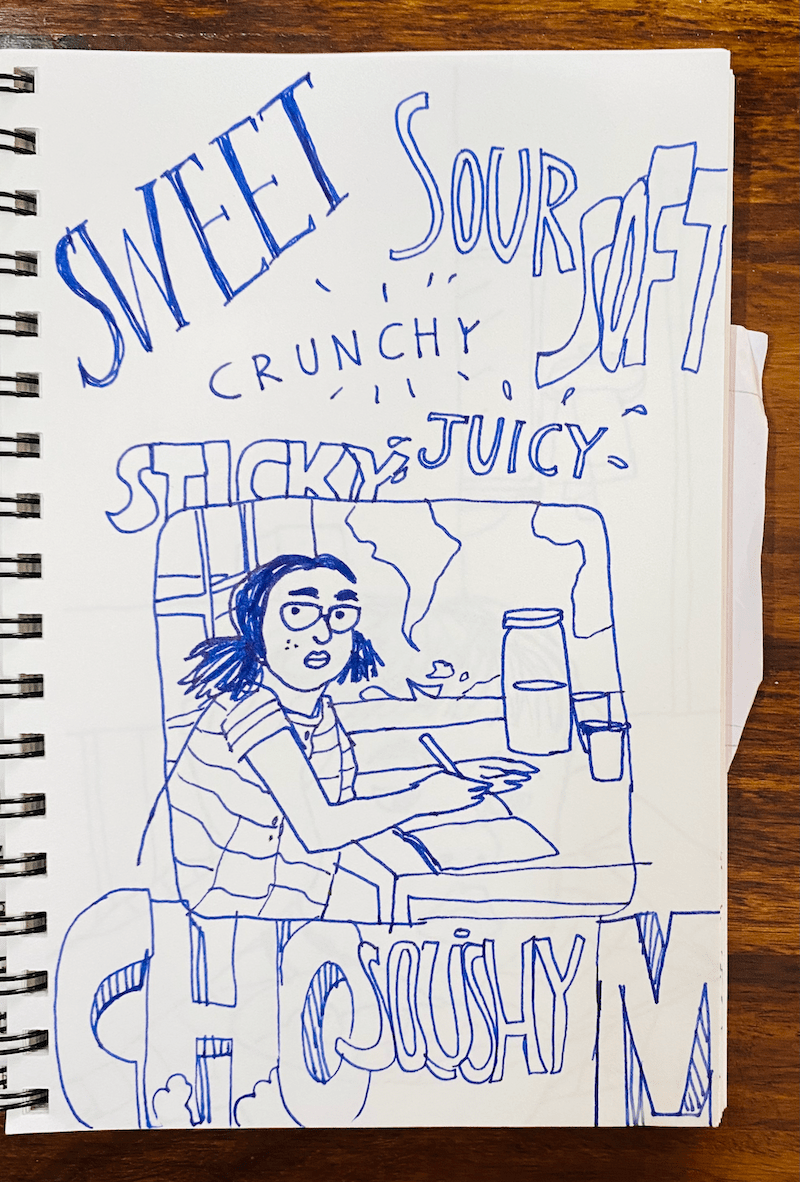 SWEET
SOUR
SOFT
CRUNCHY
JUICY
STICKY
CHOM
SQUISHY